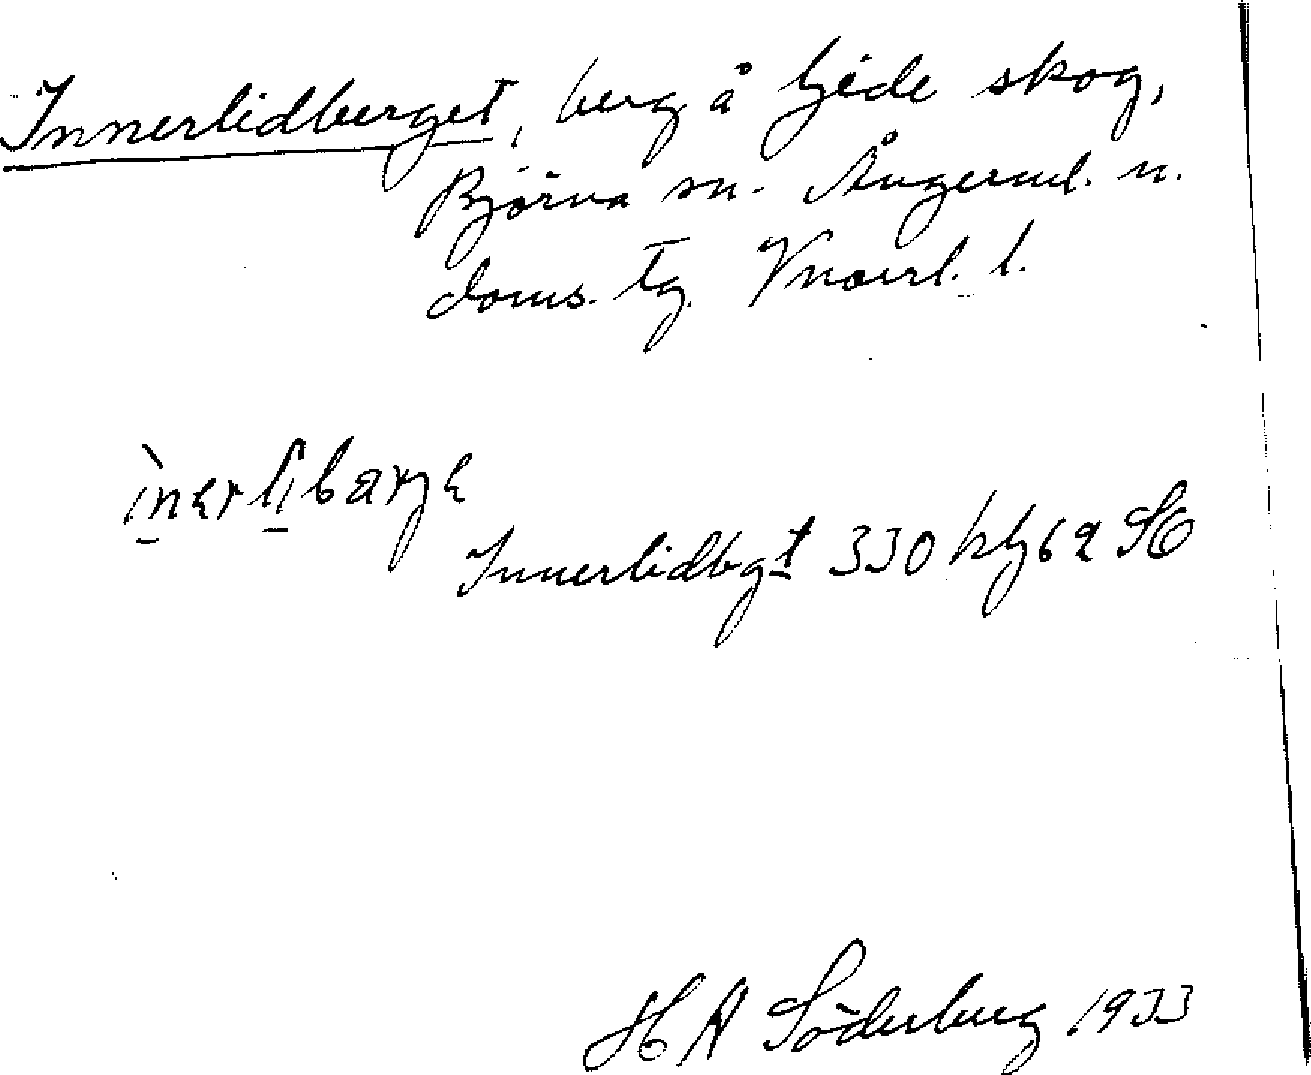 Innerlidberget, berg å Gide skog,
Björna sn. Ångerml. n.
doms. tg. Vnorrl. l.
Innerlidbgt 330 hbg 62 SO
H A Söderberg 1933